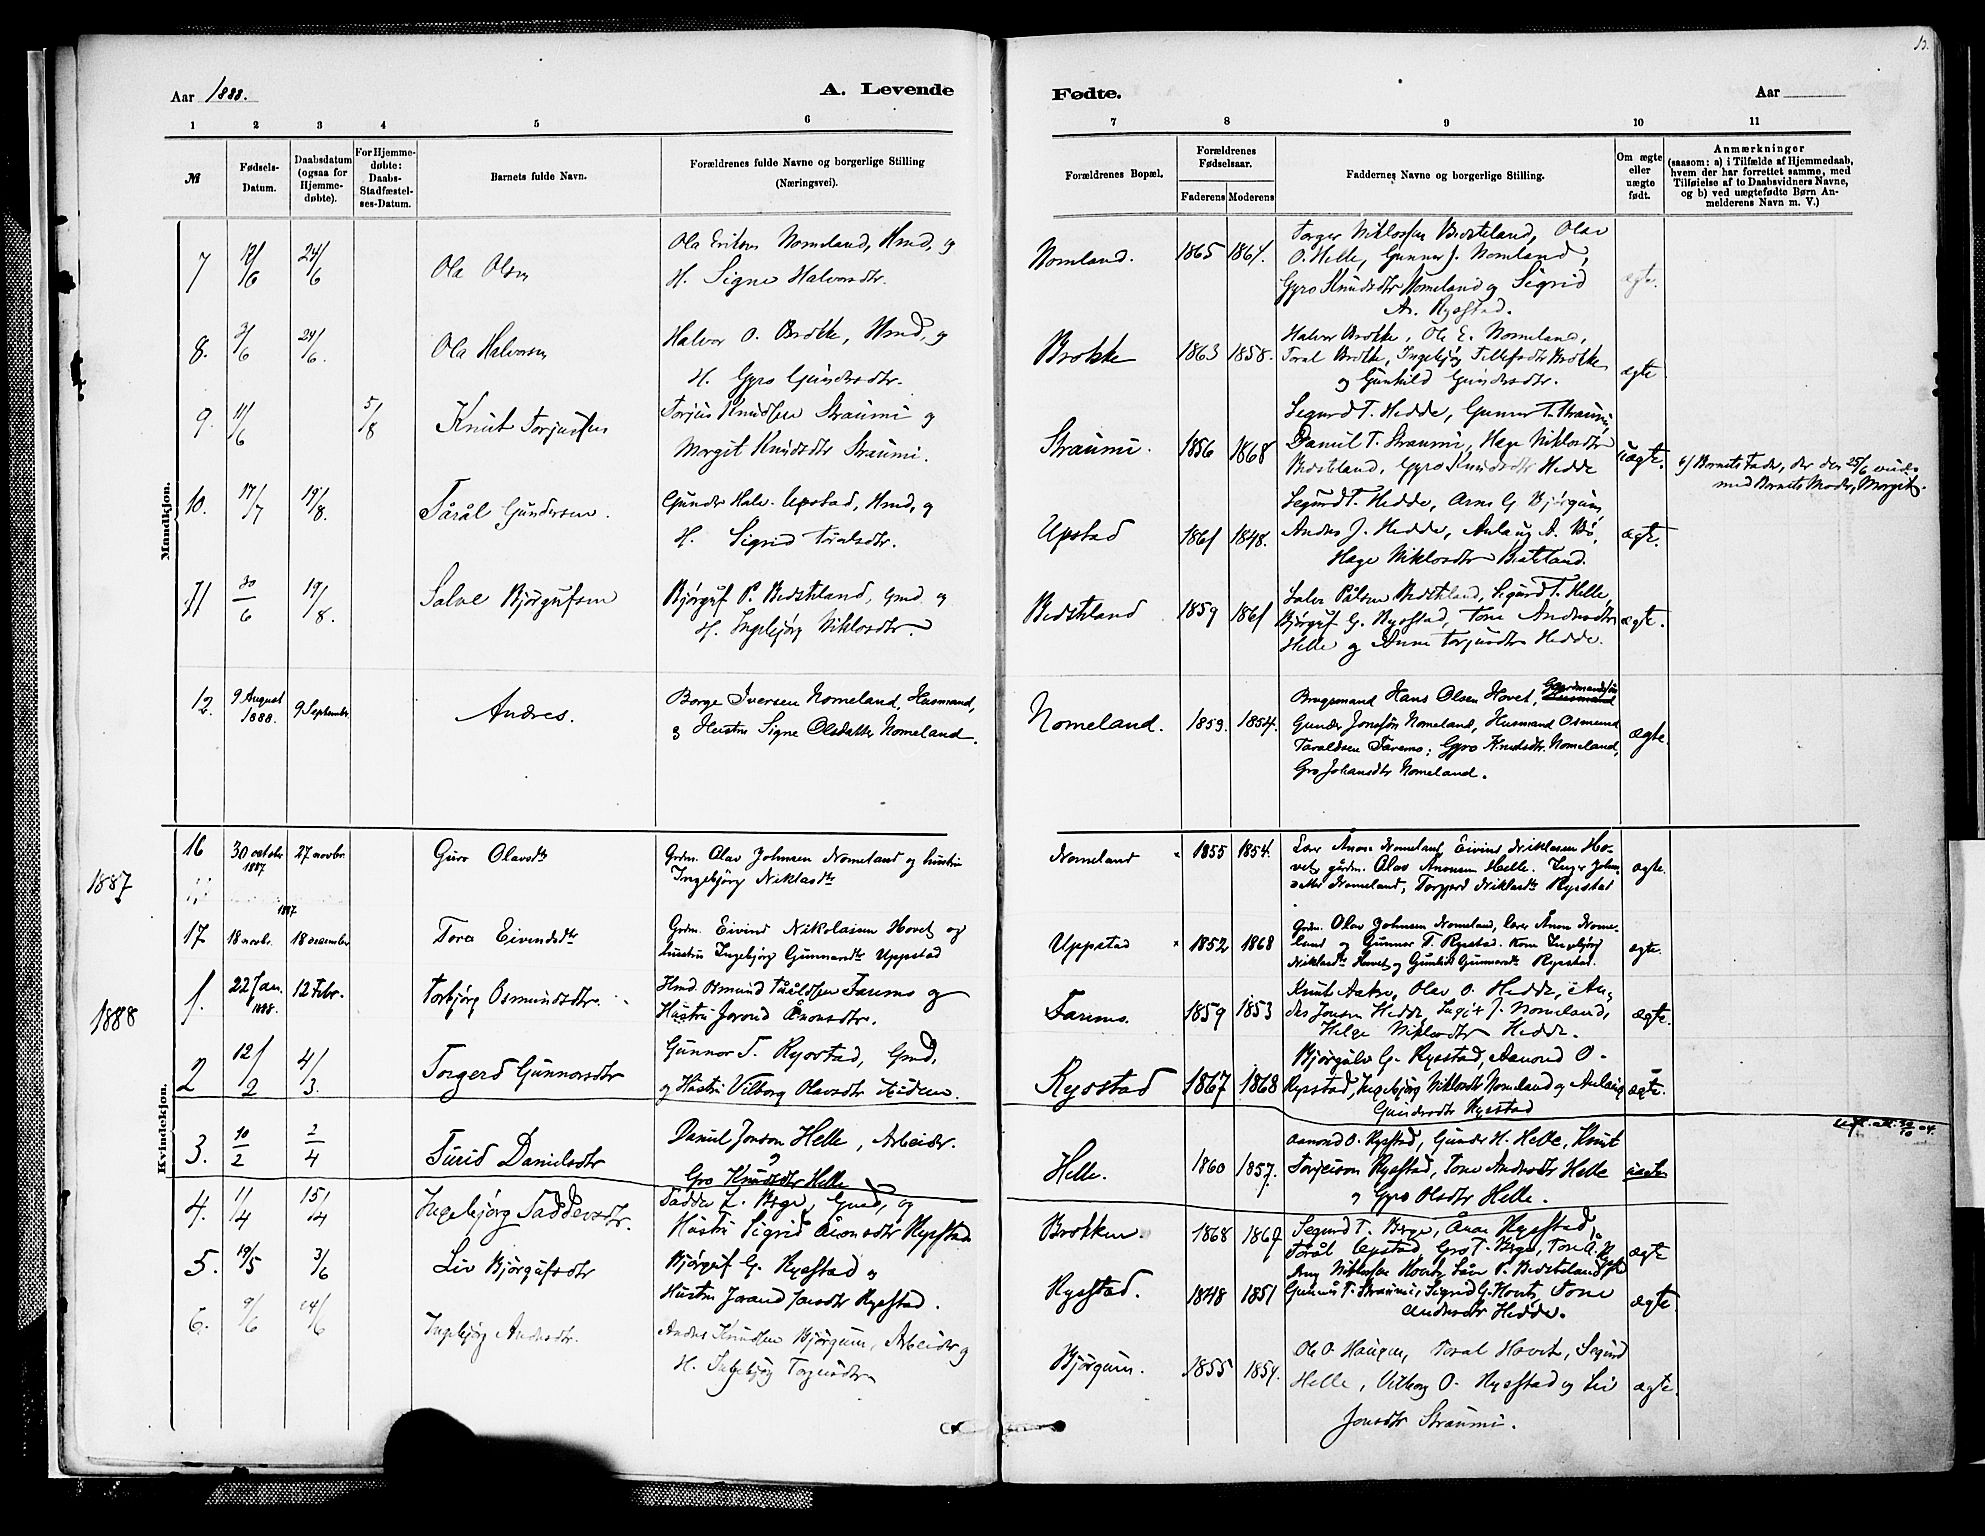 13.
Aar 1888.
A. Levende
Fødte.
Aar
1 2 3 4 5 6 7 8 9 10 11
№
Fødsels-Datum.
Daabsdatum (ogsaa for Hjemme-døbte).
For Hjemme-døbte: Daabs-Stadfæstel-ses-Datum.
Barnets fulde Navn.
Forældrenes fulde Navne og borgerlige Stilling
(Næringsvei).
Forældrenes Bopæl.
Forældrenes Fødselsaar.
Faderens Moderens
Faddernes Navne og borgerlige Stilling.
Om ægte eller uægte født.
Anmærkninger
(saasom: a) i Tilfælde af Hjemmedaab,
hvem der har forrettet samme, med
Tilføielse af to Daabsvidners Navne,
og b) ved uægtefødte Børn An-
melderens Navn m. V.)
Mandkjøn.
7 12/6 24/6 Ola Olsen
Ola Eriksen Nomeland, Hmd, og
H. Signe Halvorsdtr.
Nomland. 1865 1864.
Torger Niklossen Bedsteland, Olav
O. Helle, Gunner J. Nomland,
Gyro Knudsdtr Nomeland og Sigrid
A. Rysstad.
ægte.
8. 3/6 24/6. Ola Halvorsen
Halvor O. Brokke, Hmd, og
H. Gyro Gundersdtr.
Brokke 1863 1858.
Halvor Brokke, Ole E. Nomeland,
Toral Brokke, Ingebjørg Tellefsdtr Brokke
og Gunhild Gundersdtr.
ægte
9. 11/6 5/8 Knut Torjussen
Torjus Knudsen Straumi og
Morgit Knudsdtr Straumi.
Straumi. 1856 1868
Segurd T. Hedde, Gunner T. Straumi,
Daniel T. Straumi, Hæge Niklosdtr
Bedsteland, Gyro Knudsdtr Hedde
uægte.
b) Barnets Fader, der den 25/6 viedes
med Barnets Moder, Morgit.
10. 17/7 19/8. Tårål Gundersen.
Gunder Halv. Upstad, Hmd, og
H. Sigrid Toralsdtr.
Upstad 1861 1848.
Segurd T. Hedde, Arne G Bjørgum,
Andres J. Hedde, Aslaug A. Bø,
Hæge Niklosdtr Bedsteland.
ægte.
11 30/6 19/8. Salve Bjørgufsen
Bjørguf P. Bedsteland, Gmd. og
H. Ingebjørg Niklosdtr.
Bedsteland 1859 1861
Salve Pålsen Bedsteland, Sigurd T. Helle,
Bjørguf G. Rysstad, Tone Andersdtr
Helle og Anne Torjusdtr Hedde.
ægte.
12. 9 August 1888. 9 September Andres.
Børge Iversen Nomeland, Husmand,
og Hustru Signe Olsdatter Nomeland.
Nomeland. 1859. 1854.
Brugsmand Hans Olsen Hovet, Gaardmandssøn
Gunder Jonssøn Nomeland, Husmand Osmund
Taraldsen Faremo; Gyro Knutsdtr. Nomeland,
Gro Johansdtr Nomeland.
ægte.
1887
16 30 octobr 1887 27 novbr. Guro Olavsdtr
Grdm. Olav Johnsen Nomeland og hustru
Ingebjørg Niklasdtr
Nomeland 1855 1854.
Lærer Ånon Nomeland Eivind Niklassen Ho-
vet, gårdm. Olav Anonsen Helle. Inger Johns-
datter Nomeland, Torgjerd Niklasdtr Rysstad
ægte.
17. 18 novbr. 1887 18 december Tora Eivendsdtr
Grdm. Eivind Nikolaisen Hovet og
hustru Ingebjørg Gunnarsdtr Uppstad
Uppstad 1852 1868
Grdm. Olav Johnsen Nomeland, lærer Ånon Nome-
land og Gunnar T. Rysstad. Kone Ingebjørg
Niklasdtr Hovet og Gunhild Gunnarsdtr Rysstad.
ægte.
1888
Kvindekjøn.
1. 22 Jan. 1888. 12 Febr. Torbjørg Osmundsdtr.
Hmd. Osmund Tåråldsen Faremo og
Hustru Jorond Ånonsdtr.
Faremo. 1859 1853
Knut Aakre, Olav O. Hedde, An-
dres Jonsen Hedde, Ingir J. Nomeland,
Helge Niklosdtr Hedde.
ægte.
2 12/2 4/3. Torgerd Gunnarsdtr
Gunnar T. Rysstad, Gmd,
og Hustru Vilborg Olavsdtr
Rysstad 1867 1868
Bjørgulv G. Rysstad, Aamond O.
Rysstad, Ingebjørg Niklosdtr Nomeland og Aslaug
Gundersdtr Rysstad
ægte.
3. 10/2 2/4 Turid Danielsdtr
Daniel Jonson Helle, Arbeider.
Gro Knudsdtr Helle
Helle. 1860 1857.
Aamond O. Rysstad, Gunder H. Helle, Knut
Torjeison Rysstad, Tone Andersdtr Helle
og Gyro Olsdtr Helle.
uægte
4. 1/4 15/4 Ingebjørg Taddevsdtr.
Taddev L. Berge, Gmd, og
Hustru Sigrid Åvonsdtr Rysstad
Brokken. 1868 1867
Segurd T. Berge, Ånon Rysstad,
Tårål Upstad, Gro T. Berge, Tone A. Rysstad
ægte
5. 19/5 3/6 Liv Bjørgufsdtr
Bjørguf G. Rysstad og
Hustru Jorand Jonsdtr Rysstad.
Rysstad. 1848 1851
Aug Niklossen Hovet, Salve P. Bedsteland
Gunnar T. Straumi, Sigrid G. Hovet, Tone
Andersdtr Hedde.
ægte
6. 9/6 24/6 Ingebjørg Andersdtr.
Andres Knudsen Bjørgum, Arbeider og
H. Ingebjørg Torgusdtr
Bjørgum. 1855 1854.
Ole O. Haugen, Toral Hovet, Segurd
Helle, Vilborg O. Rysstad og Liv
Jonsdtr Straumi.
ægte